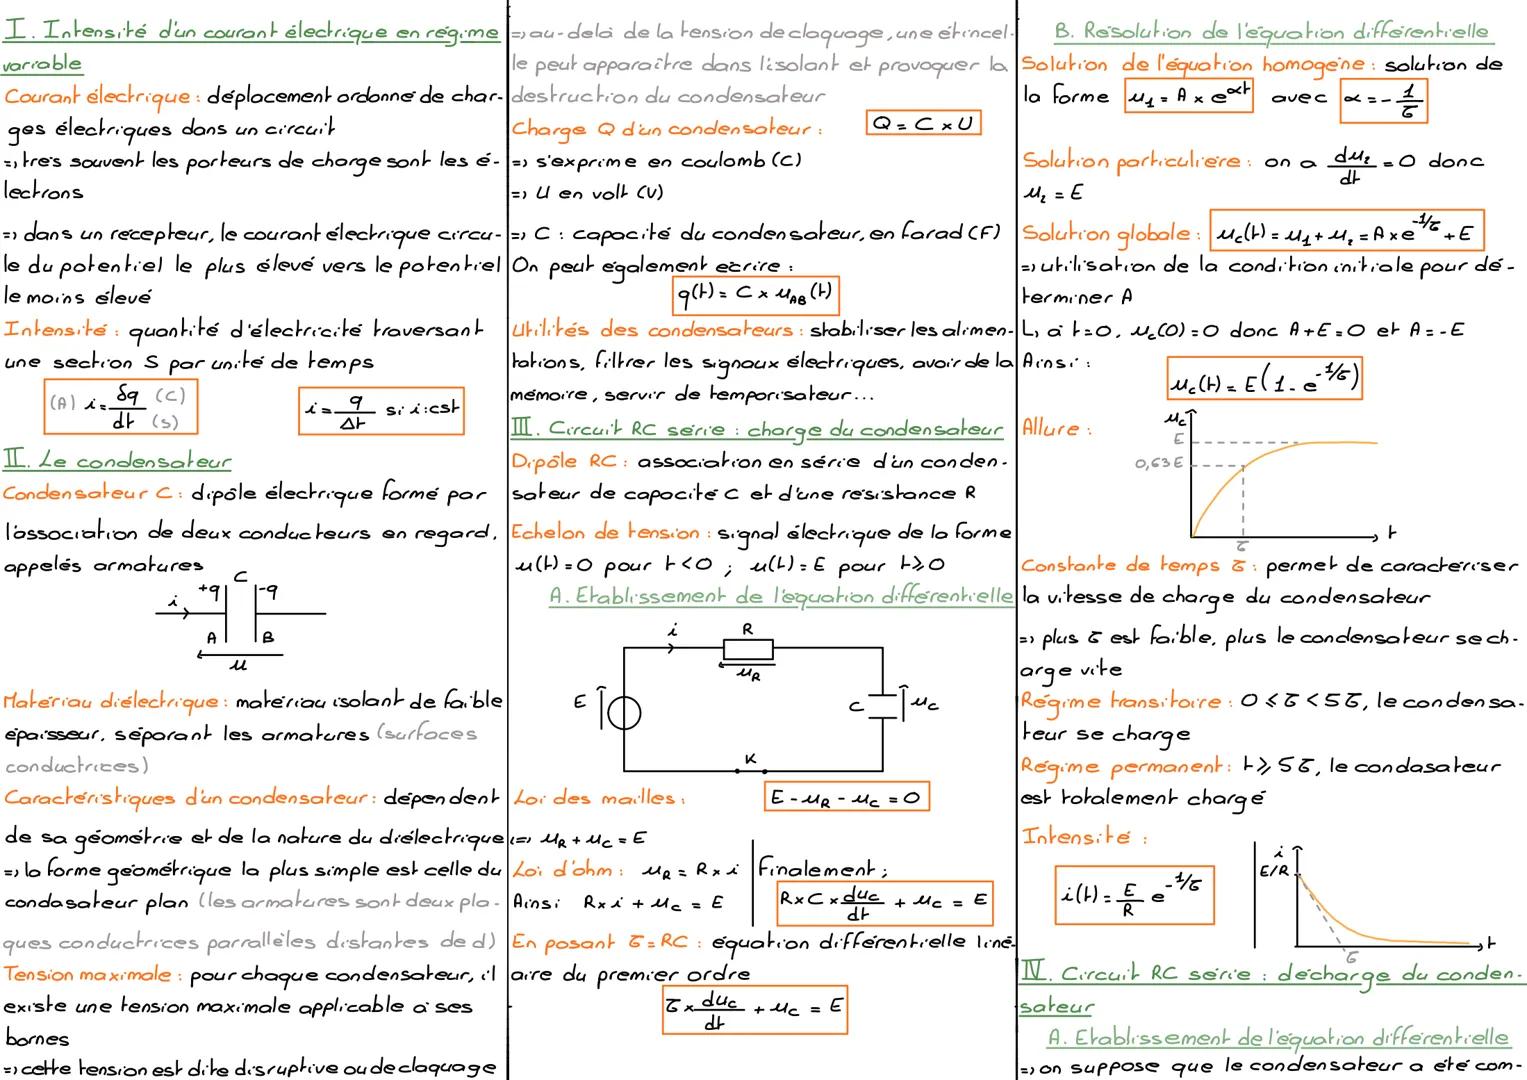 I. Intensité d'un courant électrique en régime
variable
Courant électrique : déplacement ordonné de char-
ges électriques dans un circuit
=> très souvent les porteurs de charge sont les é-
lectrons
=> dans un récepteur, le courant électrique circu-
le du potentiel le plus élevé vers le potentiel
le moins élevé
Intensité : quantité d'électricité traversant
une section S par unité de temps
(A) i = δq/dt (C) (s)
i = q/Δt si i:cst
II. Le condensateur
Condensateur C : dipôle électrique formé par
l'association de deux conducteurs en regard,
appelés armatures
C
+q -q
i
A B
u
Matériau diélectrique : matériau isolant de faible
épaisseur, séparant les armatures (surfaces
conductrices)
Caractéristiques d'un condensateur : dépendent
de sa géométrie et de la nature du diélectrique
=> la forme géométrique la plus simple est celle du
condasateur plan (les armatures sont deux pla-
ques conductrices parrallèles distantes de d)
Tension maximale : pour chaque condensateur, il
existe une tension maximale applicable à ses
bornes
=> cette tension est dite disruptive ou de claquage
=> au-delà de la tension de claquage, une étincel-
le peut apparaître dans l'isolant et provoquer la
destruction du condensateur
Charge Q d'un condensateur : Q = C x U
=> s'exprime en coulomb (C)
=> U en volt (V)
=> C : capacité du condensateur, en farad (F)
On peut également écrire :
q(t) = C x u_AB (t)
Utilités des condensateurs : stabiliser les alimen-
tations, filtrer les signaux électriques, avoir de la
mémoire, servir de temporisateur...
III. Circuit RC série : charge du condensateur
Dipôle RC : association en série d'un conden-
sateur de capacité C et d'une résistance R
Echelon de tension : signal électrique de la forme
u(t) = 0 pour t < 0 ; u(t) = E pour t ⩾ 0
A. Etablissement de l'équation différentielle
i R
u_R
E C u_C
K
Loi des mailles : E - u_R - u_C = 0
<=> u_R + u_C = E
Loi d'ohm : u_R = R x i
Ainsi R x i + u_C = E
Finalement :
R x C x du_C/dt + u_C = E
En posant τ = RC : équation différentielle liné-
aire du premier ordre
τ x du_C/dt + u_C = E
B. Résolution de l'équation différentielle
Solution de l'équation homogène : solution de
la forme u_1 = A x e^αt avec α = - 1/τ
Solution particulière : on a du_2/dt = 0 donc
u_2 = E
Solution globale : u_C(t) = u_1 + u_2 = A x e^-t/τ + E
=> utilisation de la condition initiale pour dé-
terminer A
L, à t=0, u_C(0) = 0 donc A + E = 0 et A = - E
Ainsi :
u_C(t) = E(1 - e^-t/τ)
Allure :
u_C
E
0,63E
τ
t
Constante de temps τ : permet de caractériser
la vitesse de charge du condensateur
=> plus τ est faible, plus le condensateur se ch-
arge vite
Régime transitoire : 0 ⩽ τ < 5τ, le condensa-
teur se charge
Régime permanent : t ⩾ 5τ, le condasateur
est totalement chargé
Intensité :
i(t) = E/R e^-t/τ
i
E/R
τ
t
IV. Circuit RC série : décharge du conden-
sateur
A. Etablissement de l'équation différentielle
=> on suppose que le condensateur a été com-